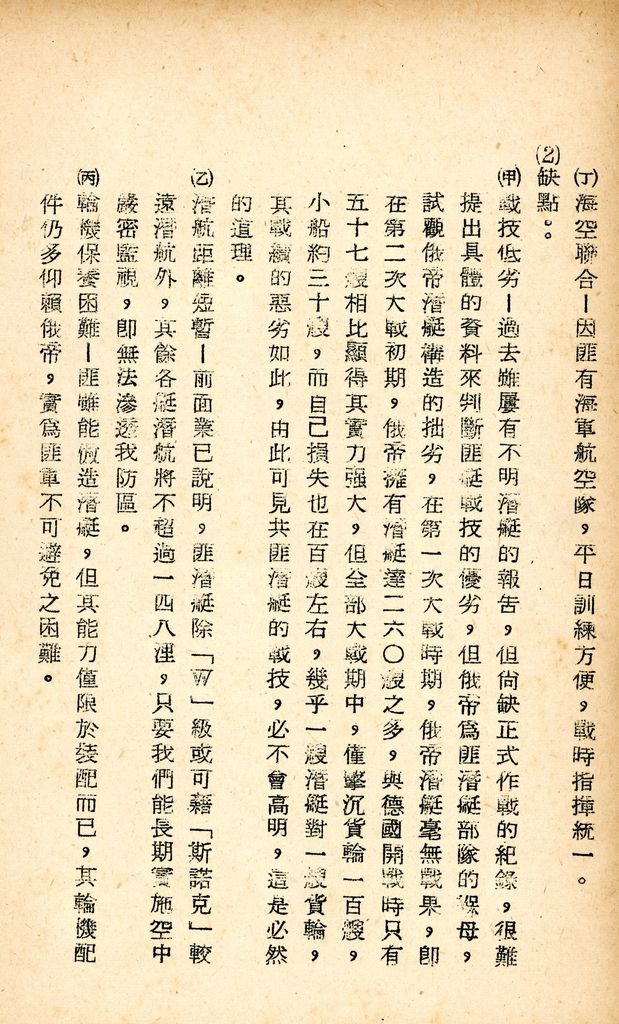 ㈠海空聯合—因匪有海軍航空隊，平日訓練方便，戰時指揮統一。
(2)缺點。。
㈙戰技低劣—過去雖屢有不明潛艇的報告，但尙缺正式作戰的紀錄，很難
提出具體的資料來判斷匪艇戰技的優劣，但俄帝爲匪潛艇部隊的保母，
試觀俄帝潛艇構造的拙劣，在第一次大戰時期，俄帝潛艇毫無戰果，卽
在第二次大戰初期，俄帝擁有潛艇達二六〇艘之多，與德國開戰時只有
五十七艘相比顯得其實力强大，但全部大戰期中，僅擊沉貨輪一百艘，
小船約三十艘，而自己損失也在百艘左右，幾乎一艘潛艇對一艘貨輪，
其戰績的惡劣如此，由此可見共匪潛艇的戰技，必不會高明，這是必然
的道理。
(乙)潛航距離短暫—前面業已說明，匪潛艇除「W」級或可藉「斯諾克」較
遠潛航外，其餘各艇潛航將不超過一四八浬，只要我們能長期實施空中
嚴密監視，卽無法滲透我防區。
(丙)輪機保養困難—匪雖能倣造潛艇，但其能力僅限於裝配而已，其輪機配
件仍多仰賴俄帝，實爲匪軍不可避免之困難。